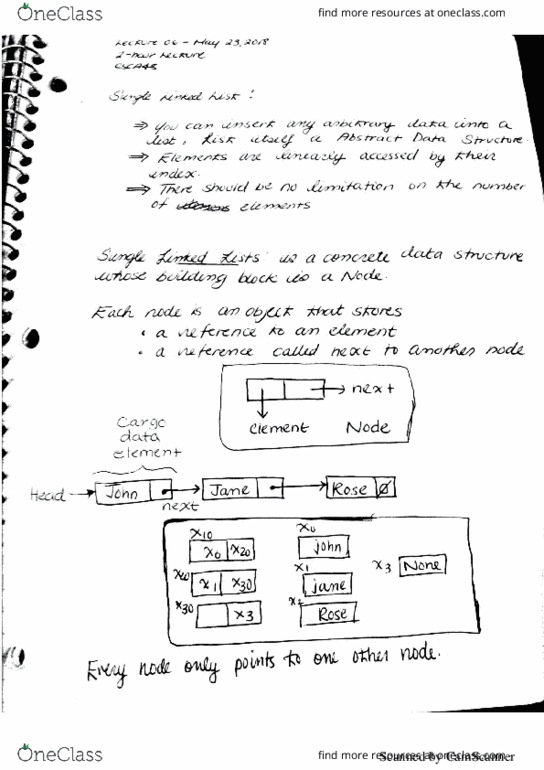 OneClass
find more resources at oneclass.com
Lecture 06 - May 23, 2018
2-hour Lecture
CSCA48
Single Linked List:
⇒ You can insert any arbitrary data into a
list, List itself a Abstract Data Structure.
⇒ Elements are linearly accessed by their
index.
⇒ There should be no limitation on the number
of elements
Single Linked Lists is a concrete data structure
whose building block is a Node.
Each node is an object that stores
• a reference to an element
• a reference called next to another node
→ next
element Node
Cargo
data
element
Head → John → Jane → Rose Ø
next
x10 x0
x0 x20 john
x3 None
x20 x1
x1 x30 jane
x30 x2
x3 Rose
Every node only points to one other node.
OneClass
find more resources at oneclass.com
Scanned by CamScanner